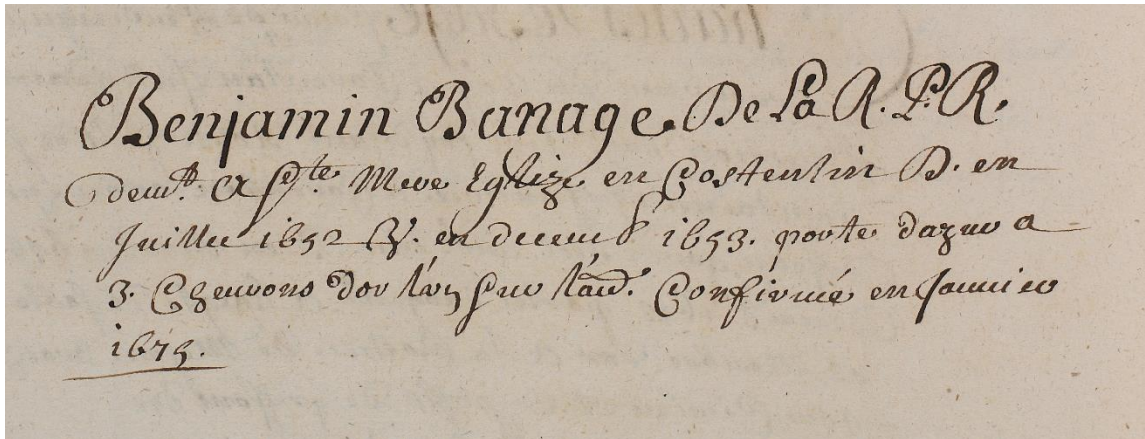 Benjamin Banage De La R. P. R.
demt. a Ste. Mere Eglize en Costentin D. en
Juillet 1652 V. en decemb 1653. porte dazur a
3. Cheurons dor l'un sur l'au. Confirmé en Januier
1675.